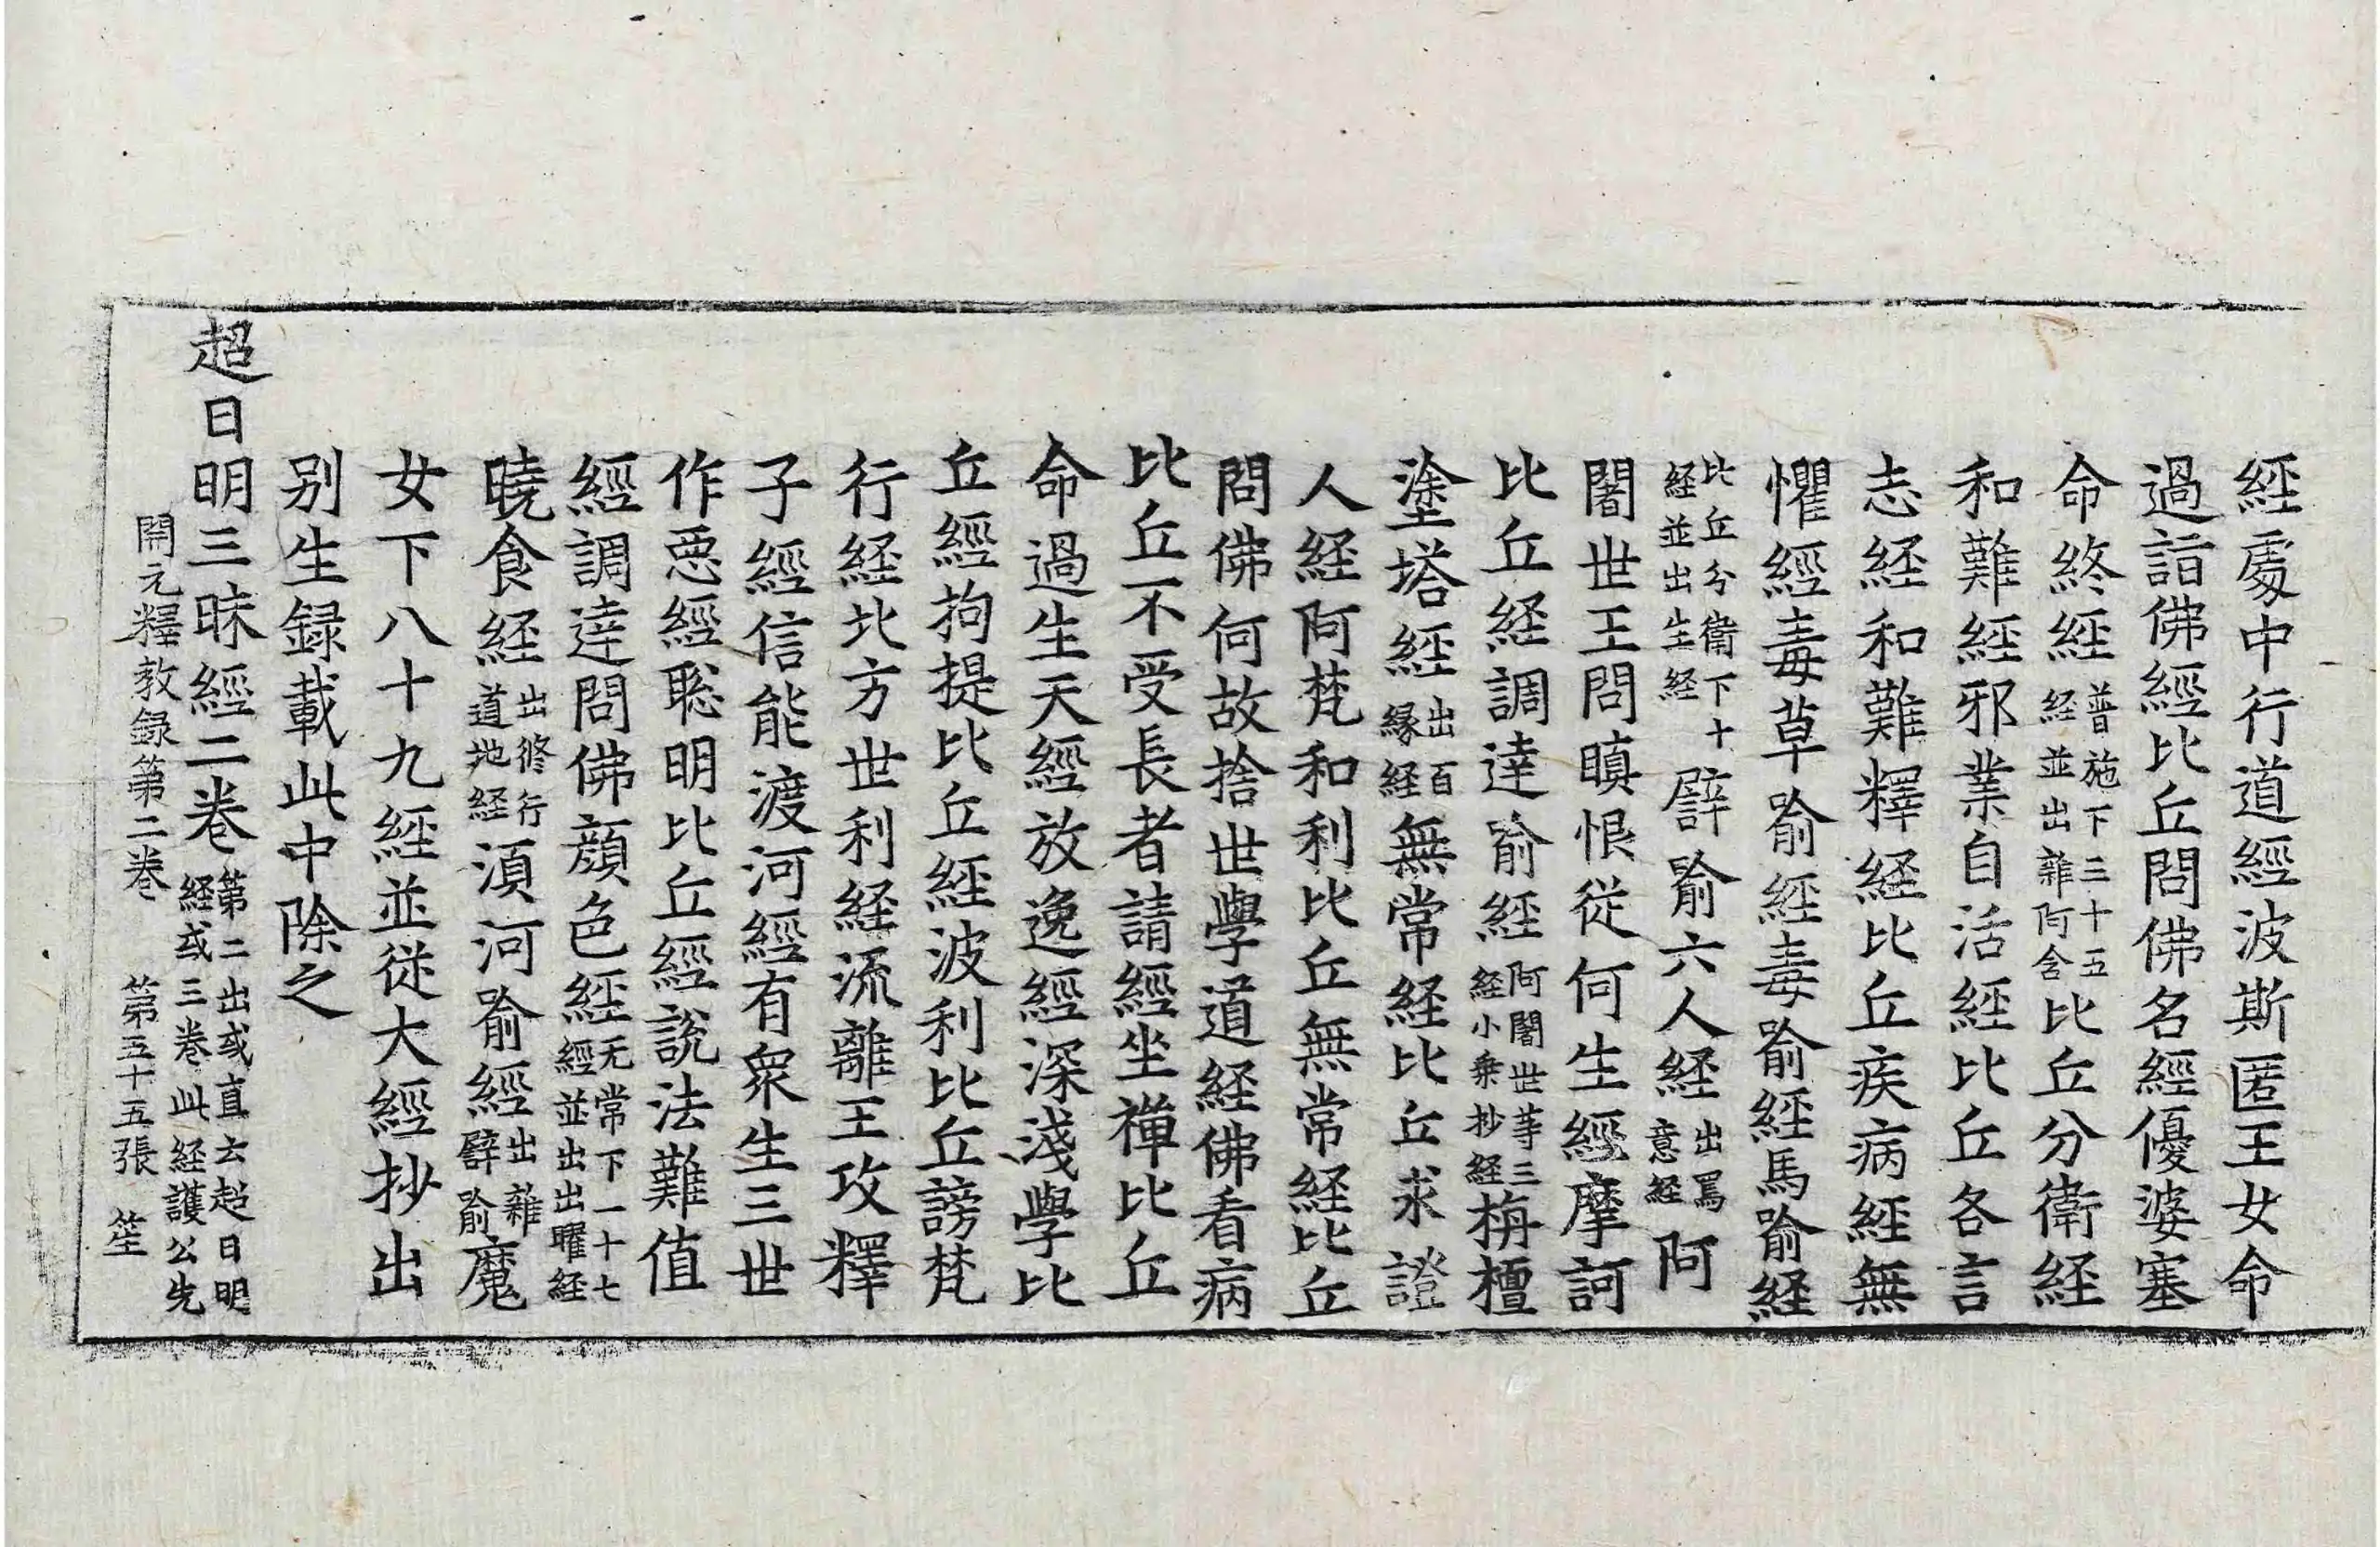 經處中行道經波斯匿王女命
過詣佛經比丘問佛名經優婆塞
命終經普施下三十五經並出雜阿含比丘分衛經
和難經邪業自活經比丘各言
志経和難釋経比丘疾病經無
懼經毒草喻經毒喻經馬喻経
比丘分衛下十経並出生経譬喻六人経出罵意経阿
闍世王問瞋恨従何生經摩訶
比丘経調達喻經阿闍世等三経小乗抄経栴檀
塗塔經出百縁経無常経比丘求證
人経阿梵和利比丘無常経比丘
問佛何故捨世學道経佛看病
比丘不受長者請經坐禪比丘
命過生天經放逸經深淺學比
丘經拘提比丘經波利比丘謗梵
行経比方世利経流離王攻釋
子經信能渡河經有衆生三世
作惡經聡明比丘經說法難值
經調達問佛顔色經无常下一十七經並出出曜経
曉食経出修行道地経湏河喻經出雜譬喻魔
女下八十九經並従大經抄出
别生録載此中除之
超日明三昧經二卷第二出或直云超日明経或三卷此経護公先
開元釋教録第二卷 第五十五張 笙